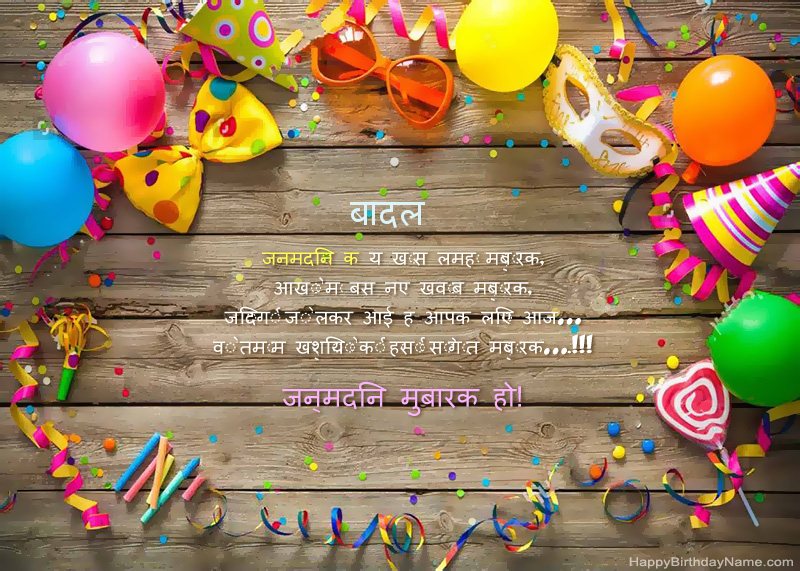 बादल
जनमदिन क य खास लमहा मुबारक,
आखों में बस नए खवाब मुबारक,
जिंदगी जो लेकर आई ह आपक लिए आज...
वो तमाम खुशियों की हसीं सौगात मुबारक...!!!
जन्मदिन मुबारक हो!
HappyBirthdayName.com